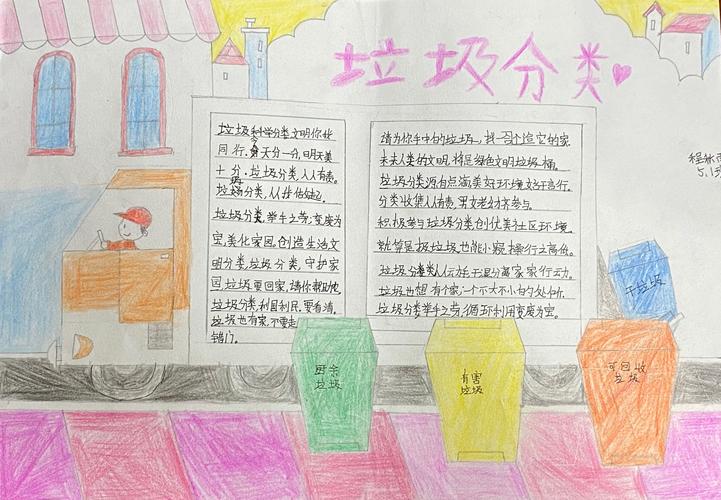 垃圾分类
垃圾科学分类文明你我
同行。今天分一分,明天美
十分。垃圾分类,人人有责。
垃圾分类,从我做起。
垃圾分类,举手之劳;变废为
宝,美化家园,创造生活文
明分类,垃圾分类,守护家
园垃圾要回家,请你帮助它
垃圾分类,利国利民,要看清
垃圾也有家,不要走
错门。
请为你手中的垃圾,找一个适它的家
未来人类的文明,将是绿色文明垃圾桶。
垃圾分类源有点滴,美好环境始于言行。
分类收集人人有责,男女老幼齐参与。
积极参与垃圾分类创优美社区环境。
就算是圾垃圾,也能小
垃圾分类人人
垃圾也想有个家,一个不大不小的
垃圾分类举手之劳,循环利用变废为宝。
厨余
垃圾
有害
垃圾
可回收
垃圾
干垃圾
5.1